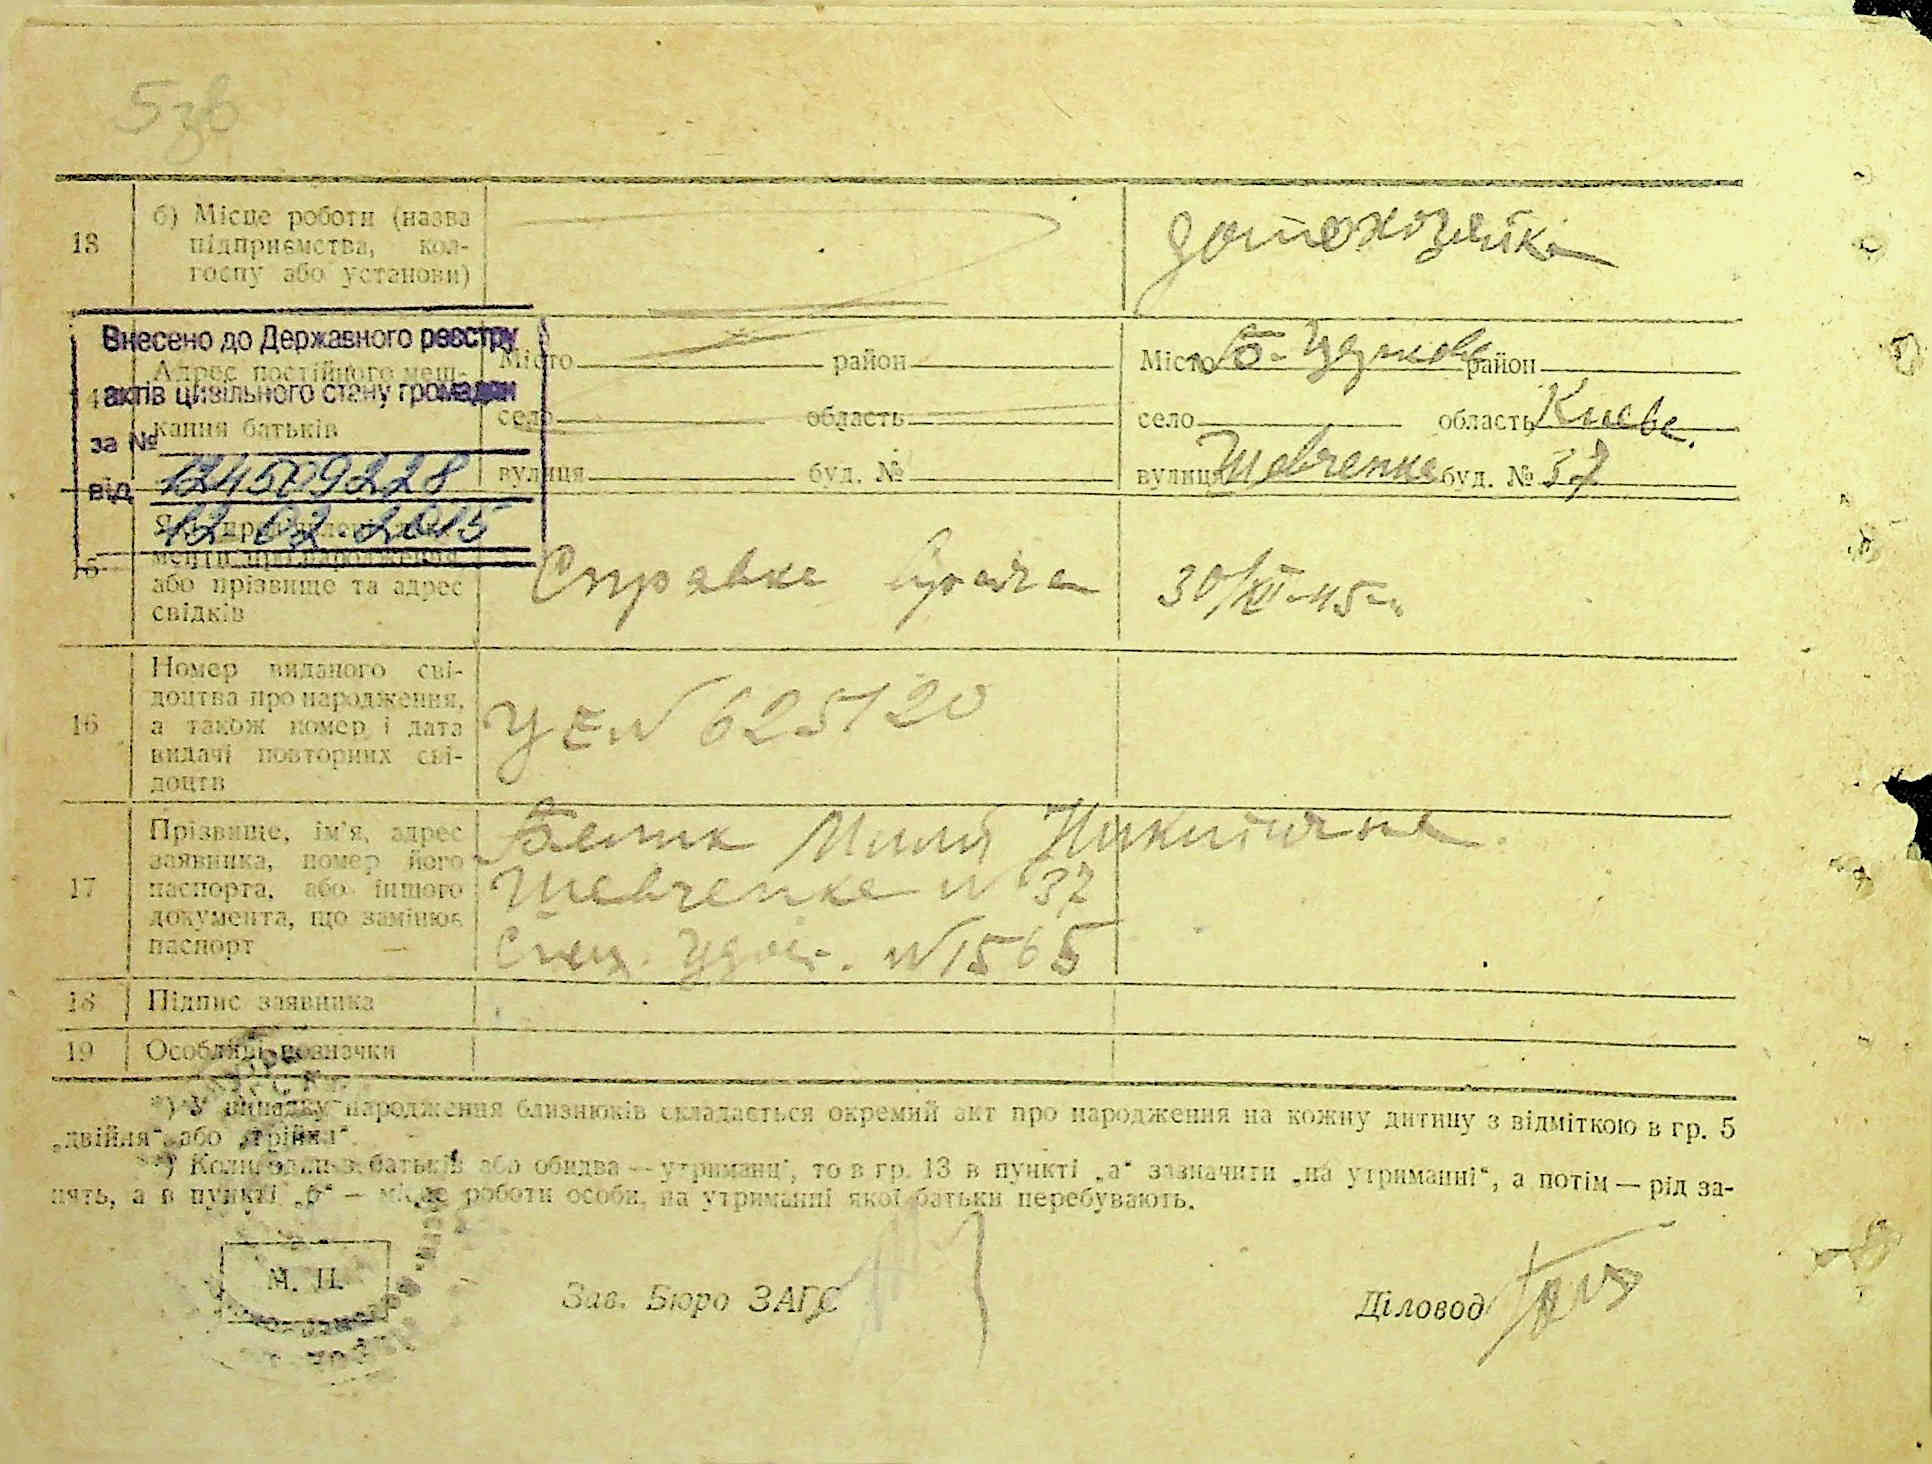 5зв
13
б) Місце роботи (назва
підприємства, кол-
госпу або установи)
домохозяйка
Внесено до Державного реєстру
актів цивільного стану громадян
за №
124509228
від
12 02 2015
Адрес постійного меш-
кання батьків
Місто район
село область
вулиця буд. №
Місто Б-Церква район
село область Киевс.
вулиця Шевченко буд. № 37
або прізвище та адрес
свідків
Справка врача 30/XI-45
16
Номер виданого сві-
доцтва про народження,
а також номер і дата
видачі повторних сві-
доцтв
УЕ № 625120
17
Прізвище, ім'я, адрес
заявника, номер його
паспорта, або іншого
документа, що замінює
паспорт
Никитична
Шевченко № 37
удос. № 1565
18
Підпис заявника
19
Особливі позначки
*) У випадку народження близнюків складається окремий акт про народження на кожну дитину з відміткою в гр. 5
„двійня“ або „трійня“.
**) Коли один з батьків або обидва — утриманці, то в гр. 13 в пункті „а“ зазначити „на утриманні“, а потім — рід за-
нять, а в пункті „б“ — місце роботи особи, на утриманні якої батьки перебувають.
М. П.
Зав. Бюро ЗАГС
Діловод